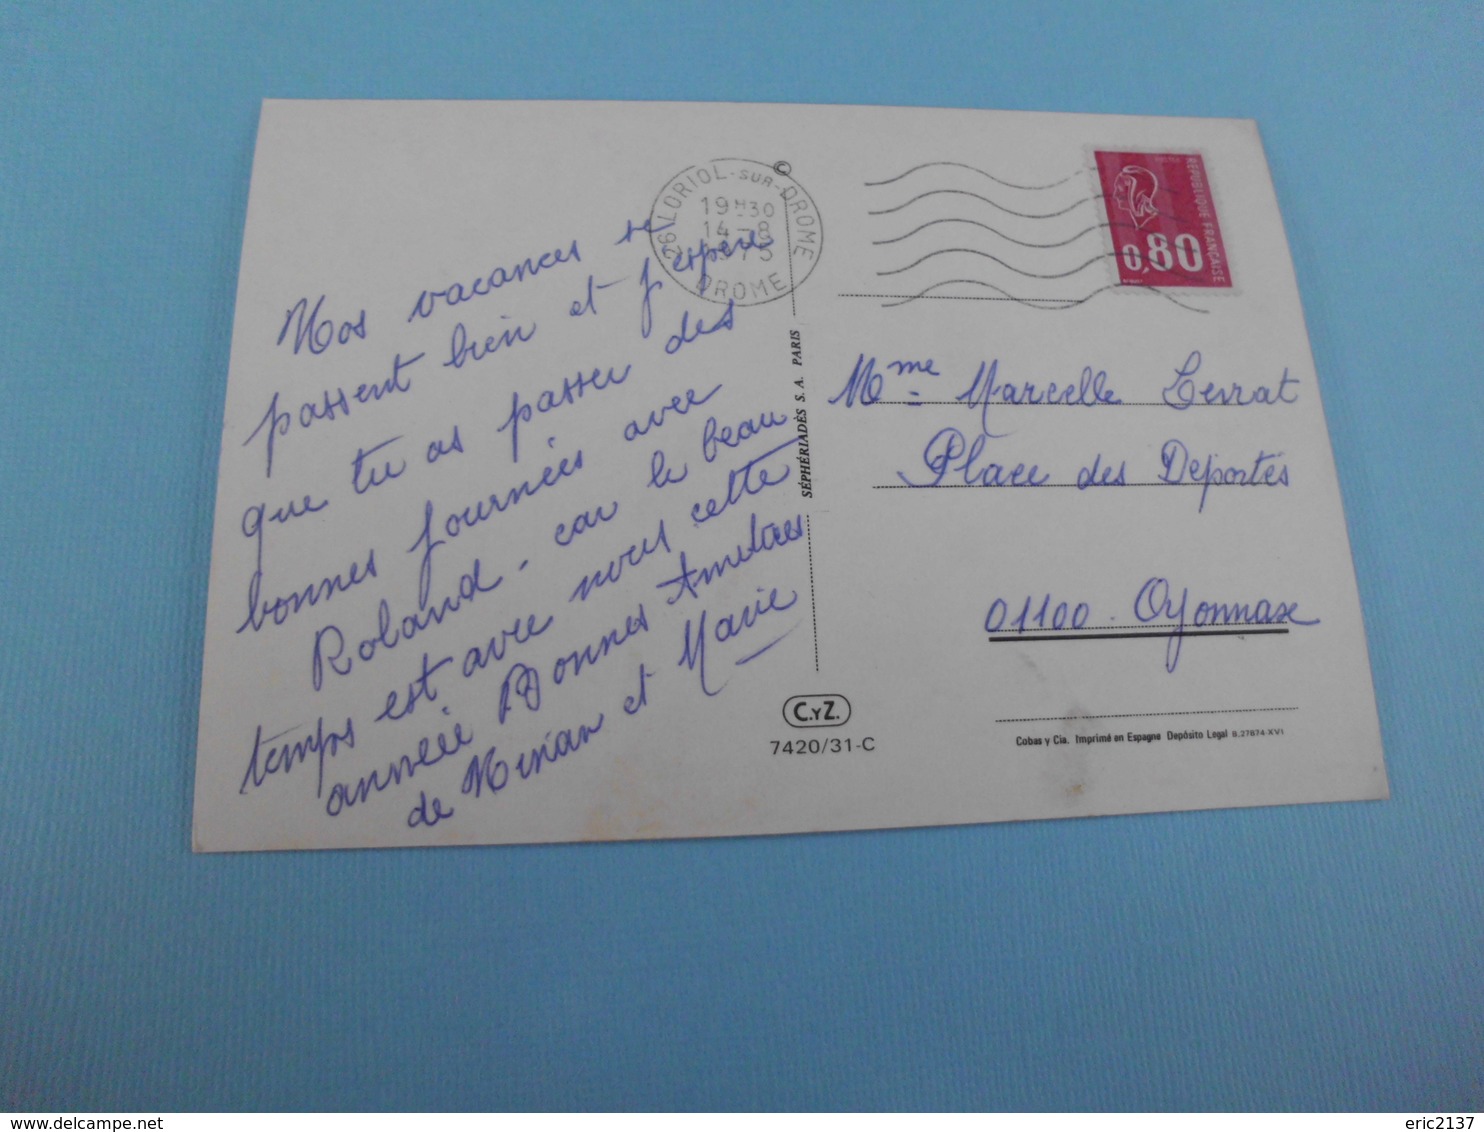 Nos vacances se
passent bien et j'espère
que tu as passer des
bonnes journées avec
Roland. car le beau
temps est avec nous cette
année Bonnes Amitiées
de Miriam et Marie
©
26 LORIOL-SUR-DROME
19H30
14-8
1975
DROME
SÉPHÉRIADÈS S. A. PARIS
POSTES
RÉPUBLIQUE FRANÇAISE
0,80
Mme Marcelle Terrat
Place des Déportés
01100 - Oyonnax
C.YZ.
7420/31-C
Cobas y Cia. Imprimé en Espagne Depósito Legal B.27874-XVI
eric2137